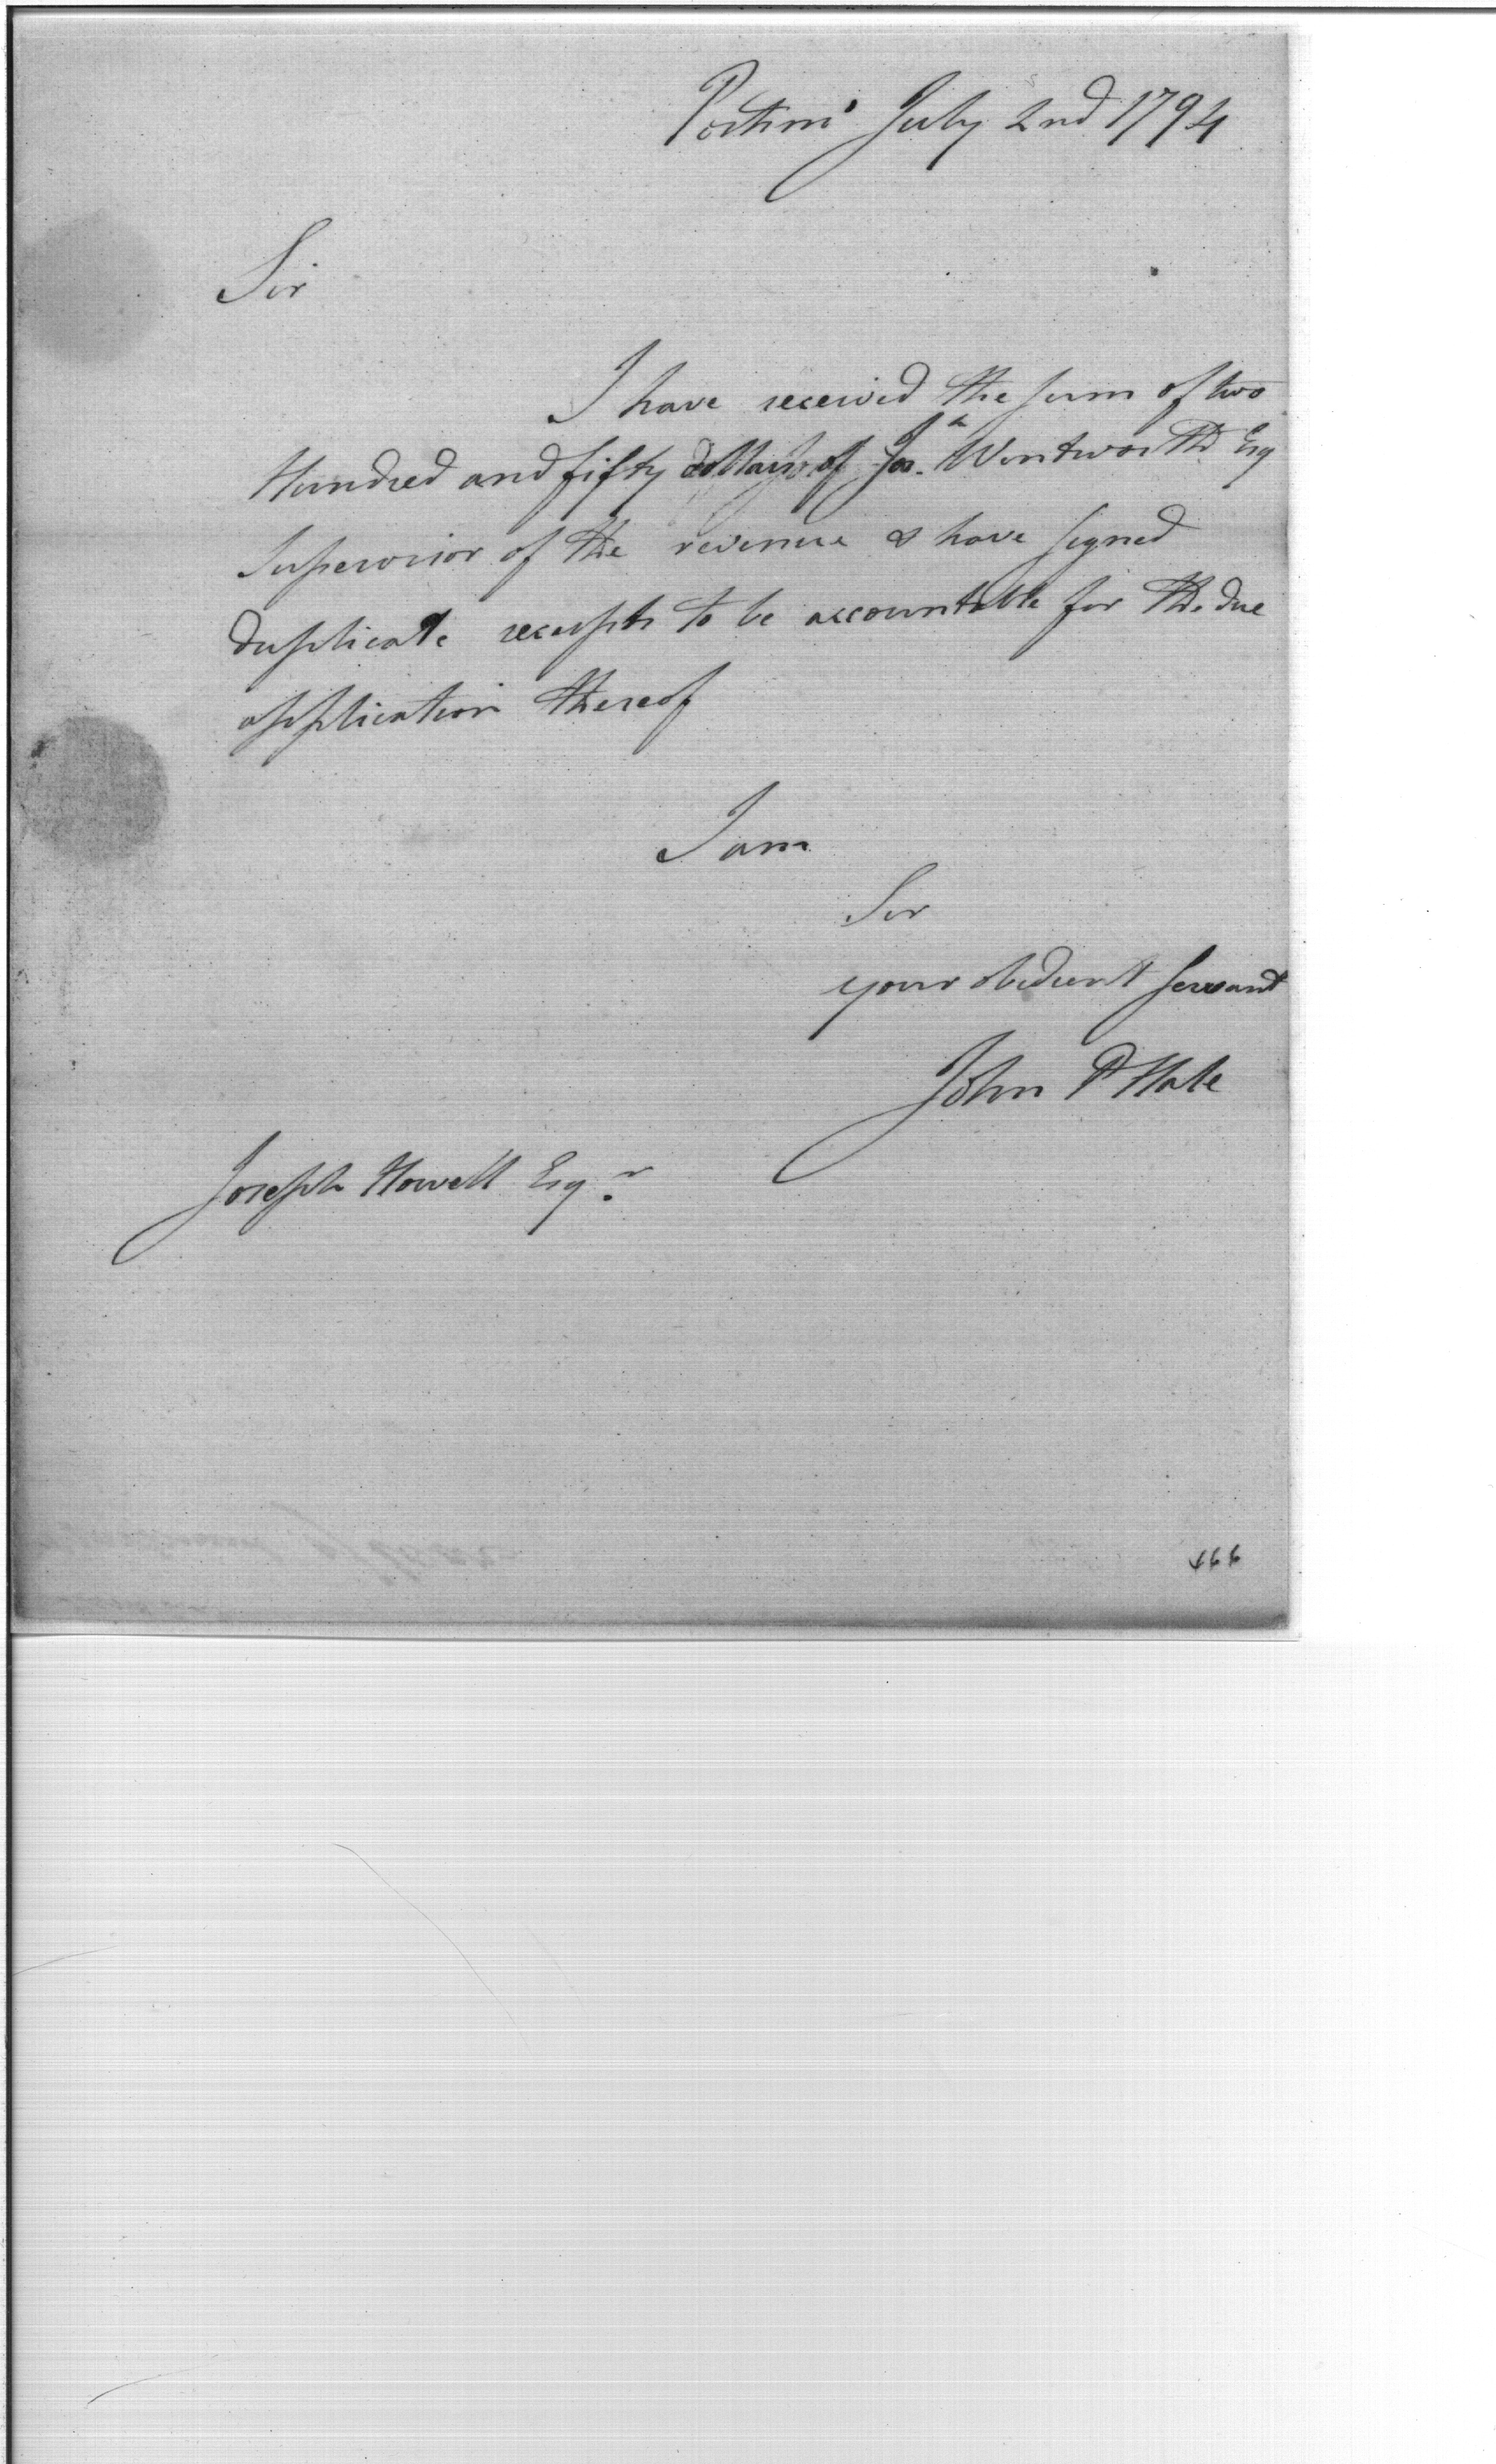 Portsmo July 2nd 1794
Sir
I have received the sum of two
Hundred and fifty dollars of Josh. Wentworth Esq
Supervisor of the revenue & have signed
duplicate receipts to be accountable for the due
application thereof
I am
Sir
your obedient servant
John P Hale
Joseph Howell Esqr.